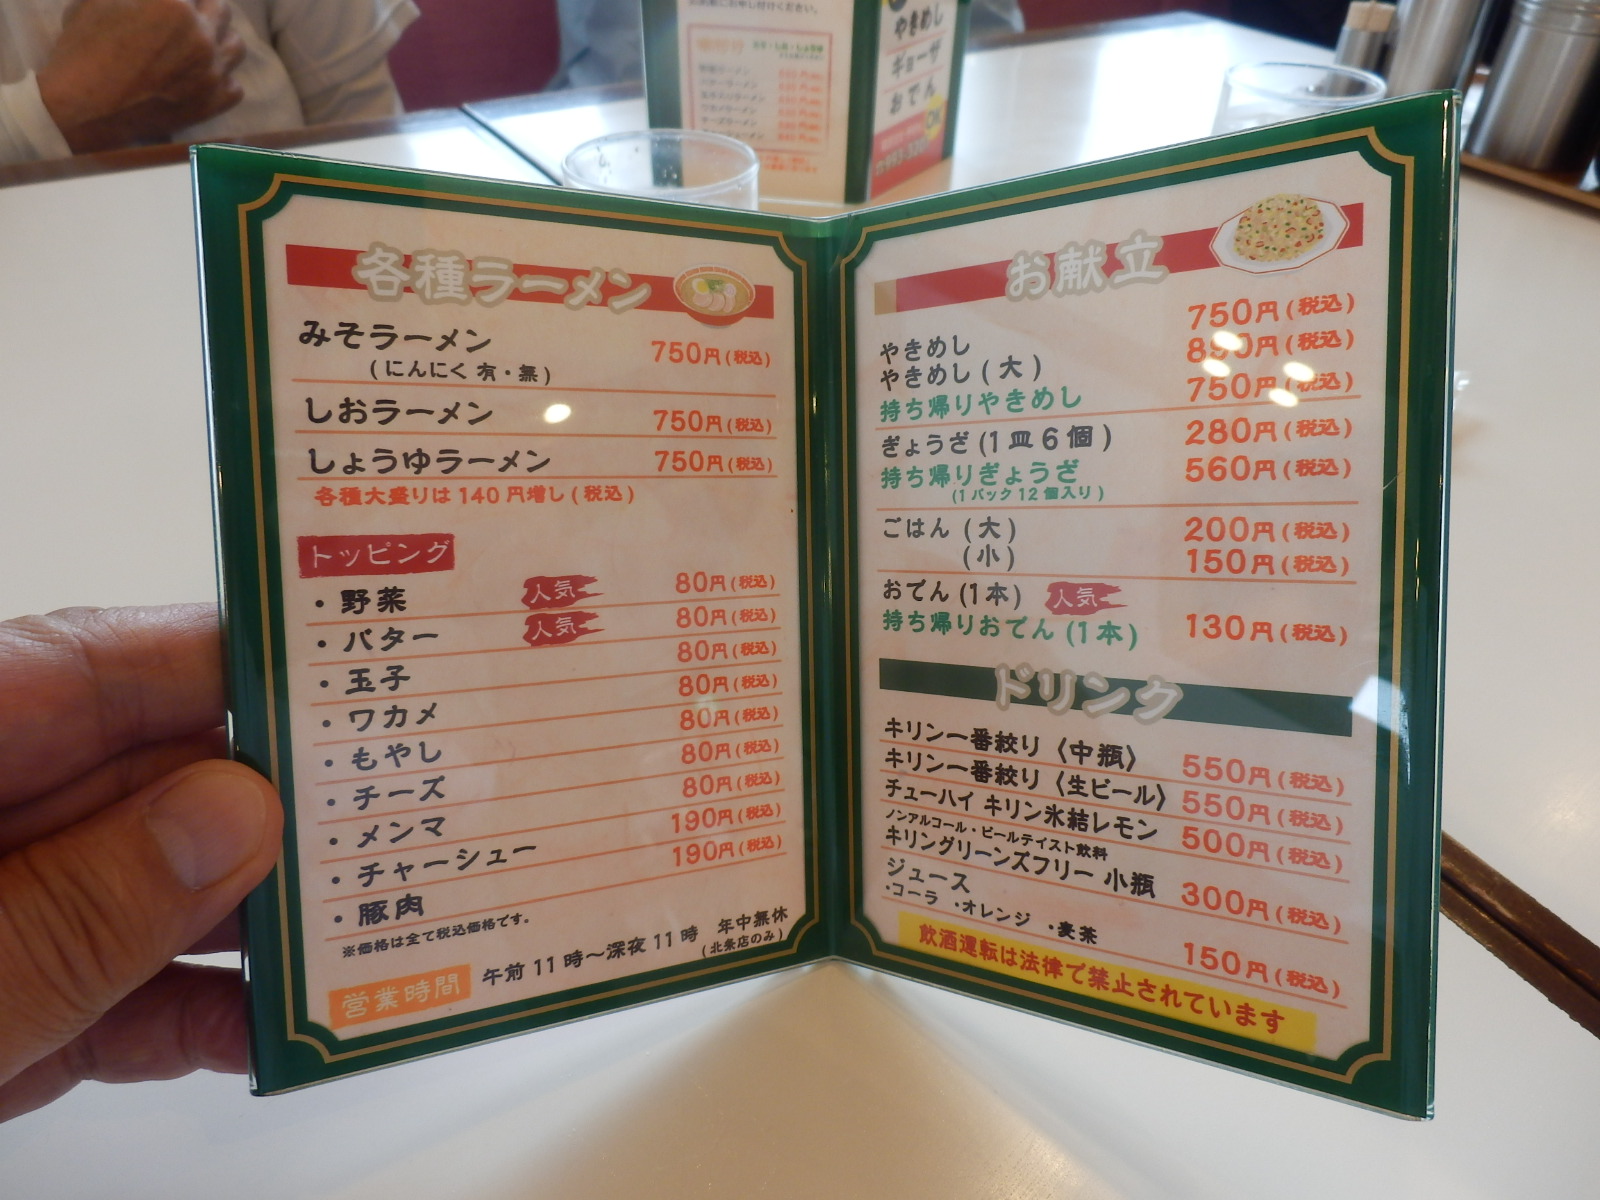 各種ラーメン
みそラーメン 750円(税込)
(にんにく 有・無)
しおラーメン 750円(税込)
しょうゆラーメン 750円(税込)
各種大盛りは140円増し(税込)
トッピング
・野菜 人気 80円(税込)
・バター 人気 80円(税込)
・玉子 80円(税込)
・ワカメ 80円(税込)
・もやし 80円(税込)
・チーズ 80円(税込)
・メンマ 80円(税込)
・チャーシュー 190円(税込)
・豚肉 190円(税込)
※価格は全て税込価格です。
営業時間 午前11時〜深夜11時 年中無休
(北条店のみ)
お献立
やきめし 750円(税込)
やきめし(大) 890円(税込)
持ち帰りやきめし 750円(税込)
ぎょうざ(1皿6個) 280円(税込)
持ち帰りぎょうざ 560円(税込)
(1パック12個入り)
ごはん(大) 200円(税込)
(小) 150円(税込)
おでん(1本) 人気
持ち帰りおでん(1本) 130円(税込)
ドリンク
キリン一番絞り〈中瓶〉 550円(税込)
キリン一番絞り〈生ビール〉 550円(税込)
チューハイ キリン氷結レモン 500円(税込)
ノンアルコール・ビールテイスト飲料
キリングリーンズフリー 小瓶 300円(税込)
ジュース 150円(税込)
・コーラ ・オレンジ ・麦茶
飲酒運転は法律で禁止されています
やきめし
ギョーザ
おでん
OK